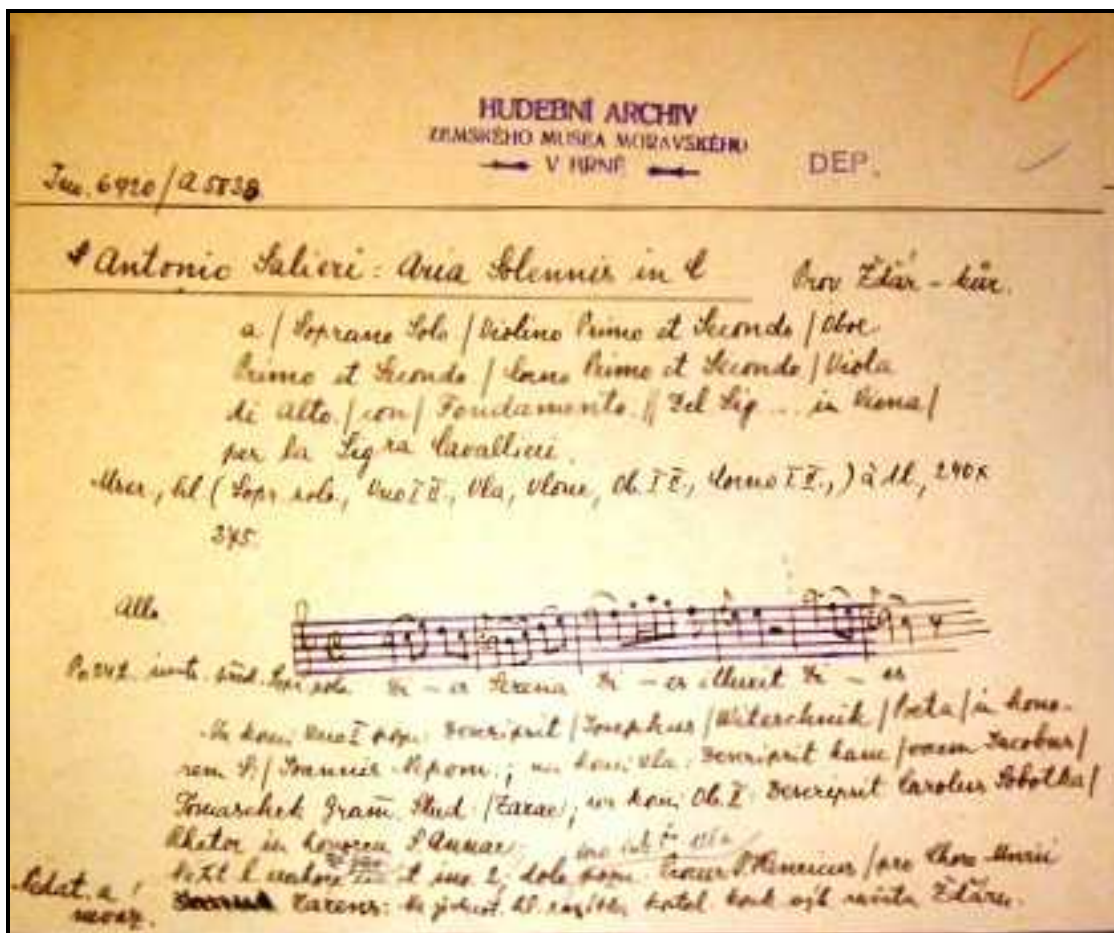 HUDEBNÍ ARCHIV
ZEMSKÉHO MUSEA MORAVSKÉHO
V BRNĚ
DEP.
Inv. 6920/A 5838
Antonio Salieri: Aria Solennis in C
Prov Žďár - kůr.
a / Soprano Solo / Violino Primo et Secondo / Oboe
Primo et Secondo / Corno Primo et Secondo / Viola
di Alto / con / Fondamento // Del Sig ... in Viena /
per la Sigra Cavallieri.
hl (Sopr. solo, Vno I II, Vla, Vlone, Ob. I II, Corno I II,) à 1l, 240x
345.
Allo
Po 242 sólo Di - es Serena Di - es illuxit Di - es
Vno I Descripsit / Josephus / Witeschnik / Poeta / in hono-
rem S. / Joannis Nepom.; na konci Vla: Descripsit hanc / vocem Jacobus /
Tomaschek Gram. Stud. / Zarae; na konci Ob. I: Descripsit Carolus Sobotka /
Rhetor in honorem S Annae;
dole P. Henricus / pro Choro
Nedat. a
Zarens: hl. města Žďáru.